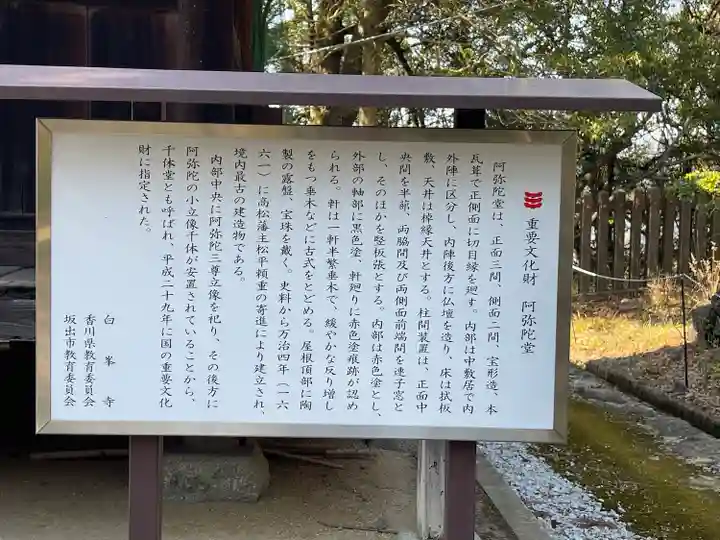 重要文化財 阿弥陀堂
阿弥陀堂は、正面三間、側面二間、宝形造、本
瓦葺で正側面に切目縁を廻す。内部は中敷居で内
外陣に区分し、内陣後方に仏壇を造り、床は拭板
敷、天井は棹縁天井とする。柱間装置は、正面中
央間を半蔀、両脇間及び両側面前端間を連子窓と
し、そのほかを竪板張とする。内部は赤色塗とし、
外部の軸部に黒色塗、軒廻りに赤色塗痕跡が認め
られる。軒は一軒半繁垂木で、緩やかな反り増し
をもつ垂木などに古式をとどめる。屋根頂部に陶
製の露盤、宝珠を戴く。史料から万治四年(一六
六一)に高松藩主松平頼重の寄進により建立され、
境内最古の建造物である。
内部中央に阿弥陀三尊立像を祀り、その後方に
阿弥陀の小立像千体が安置されていることから、
千体堂とも呼ばれ、平成二十九年に国の重要文化
財に指定された。
白峯寺
香川県教育委員会
坂出市教育委員会